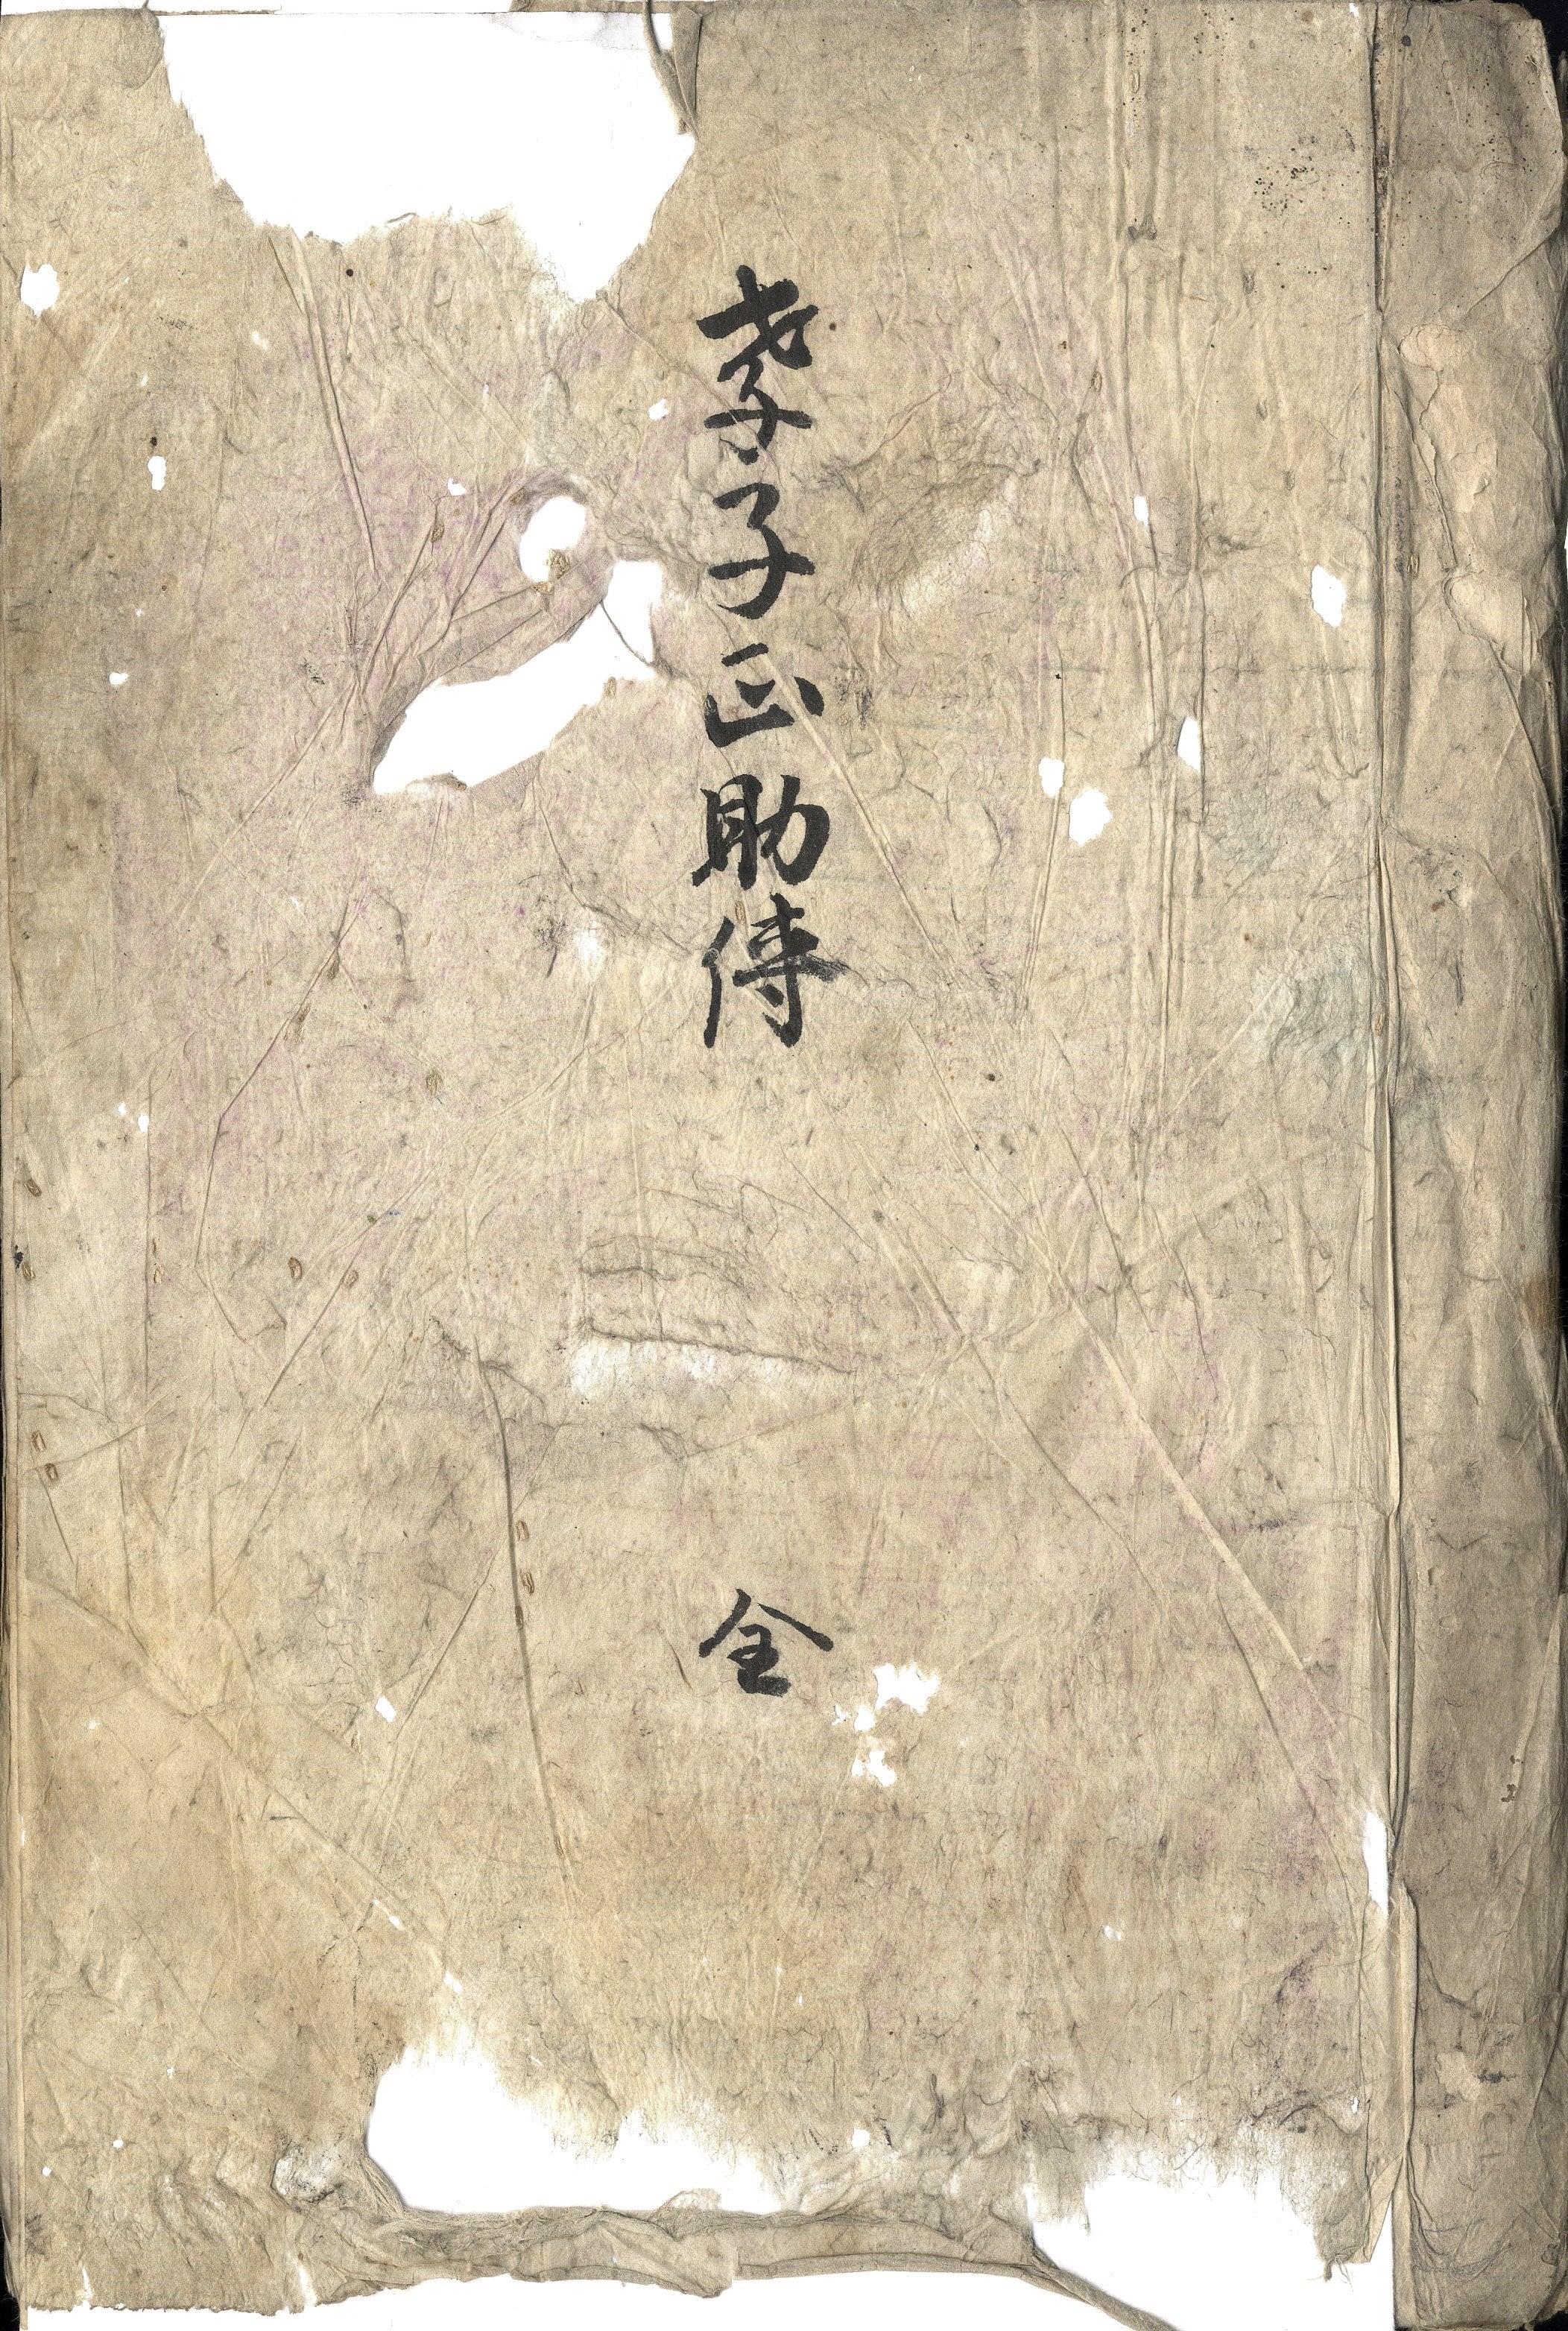 孝子正助傳
全